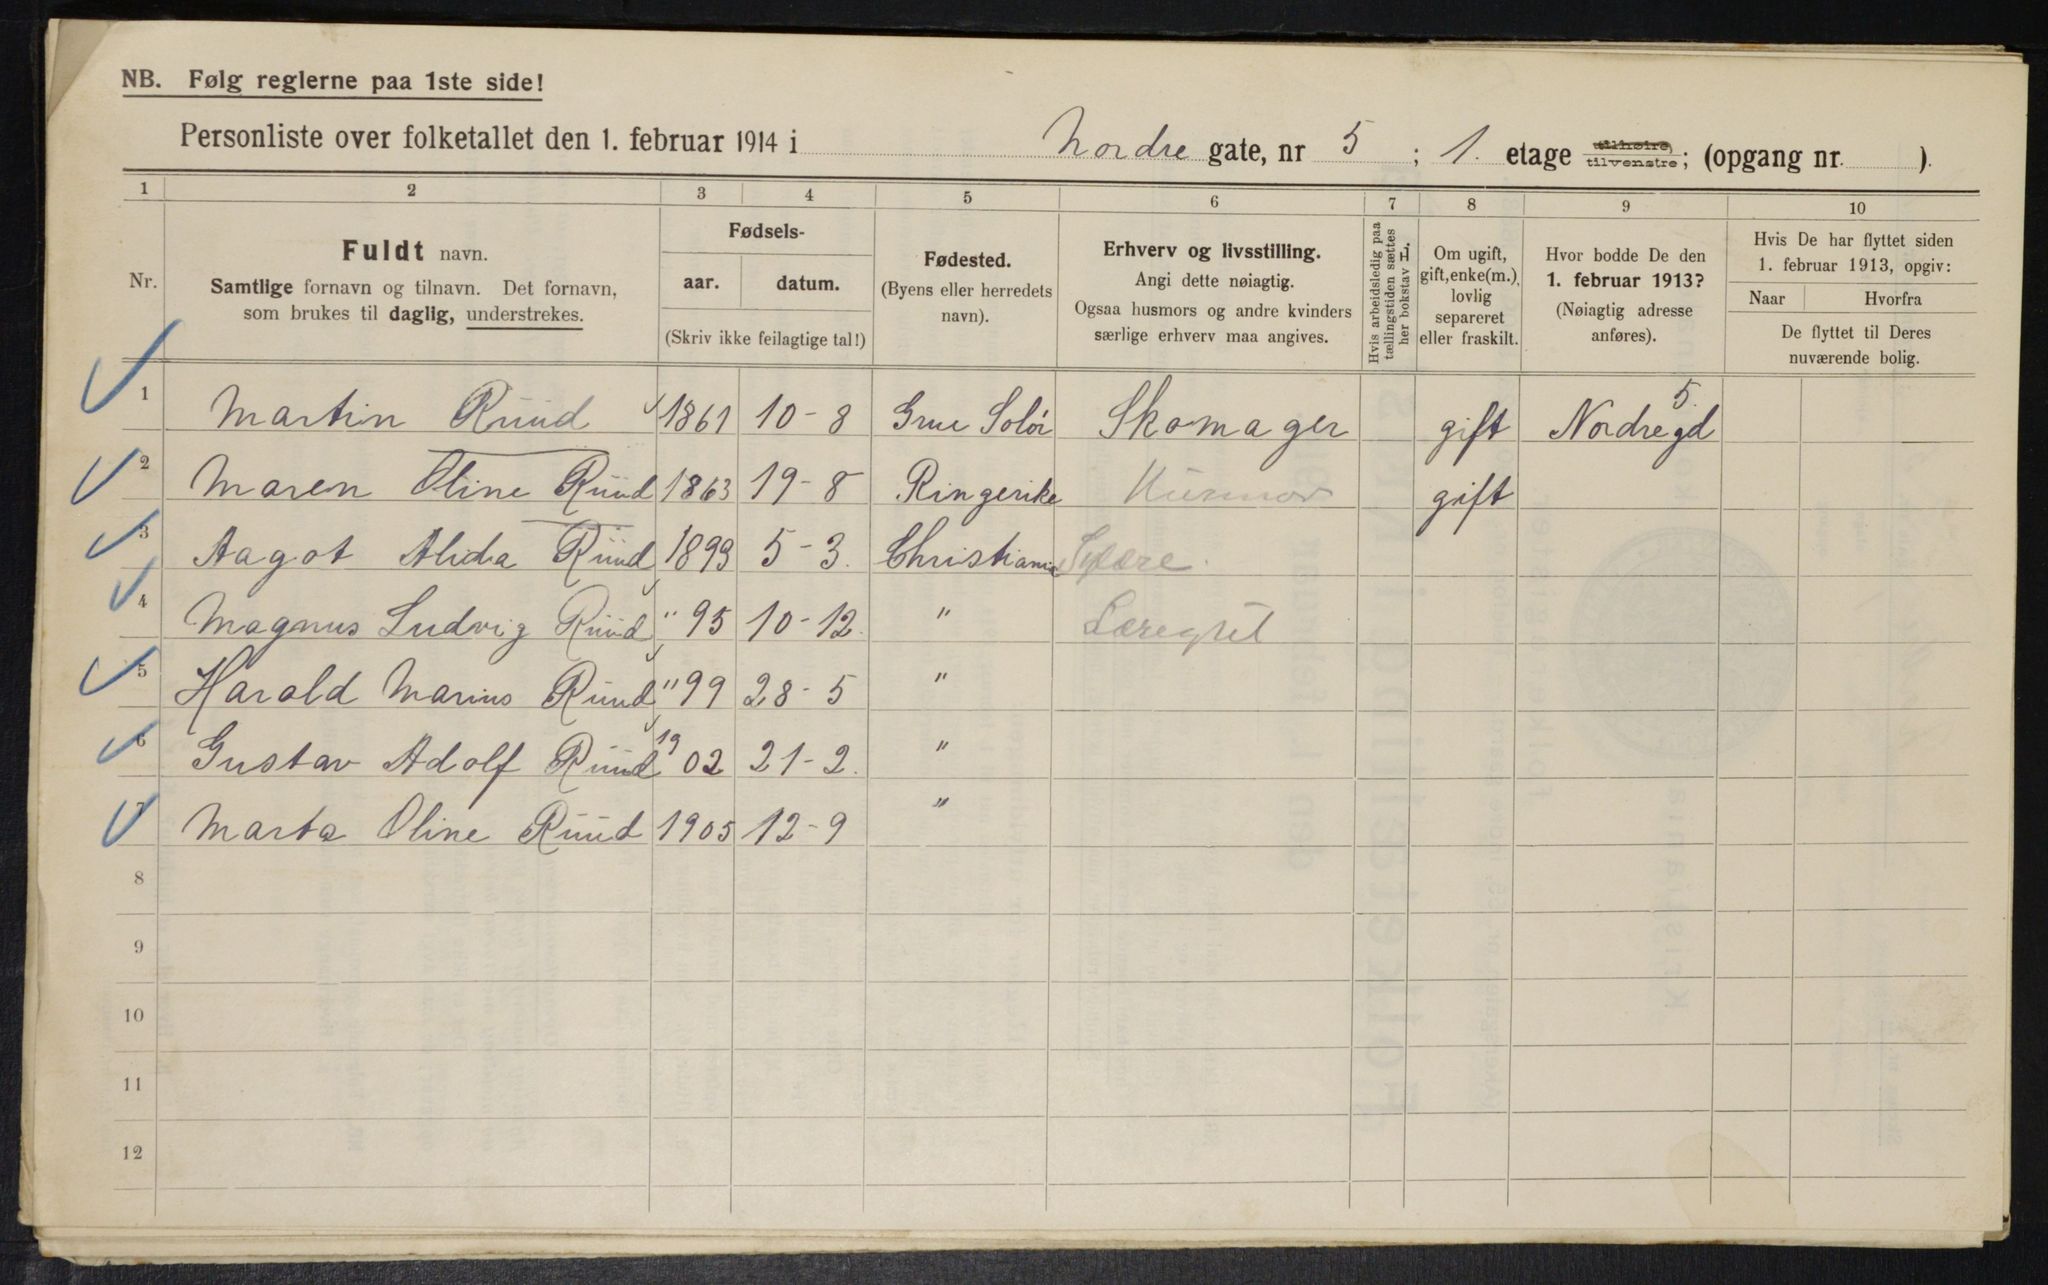 NB. Følg reglerne paa 1ste side!
Personliste over folketallet den 1. februar 1914 i Nordre gate, nr 5 ; 1. etage tilhøire, tilvenstre; (opgang nr. ).
1 2 3 4 5 6 7 8 9 10
Nr.
Fuldt navn.
Samtlige fornavn og tilnavn. Det fornavn,
som brukes til daglig, understrekes.
Fødsels-
aar. datum.
(Skriv ikke feilagtige tal!)
Fødested.
(Byens eller herredets
navn).
Erhverv og livsstilling.
Angi dette nøiagtig.
Ogsaa husmors og andre kvinders
særlige erhverv maa angives.
Hvis arbeidsledig paa
tællingstiden sættes
her bokstav L.
Om ugift,
gift, enke(m.),
lovlig
separeret
eller fraskilt.
Hvor bodde De den
1. februar 1913?
(Nøiagtig adresse
anføres).
Hvis De har flyttet siden
1. februar 1913, opgiv:
Naar Hvorfra
De flyttet til Deres
nuværende bolig.
1 Martin Ruud 1861 10-8 Grue Solør Skomager gift Nordregd 5.
2 Maren Oline Ruud 1863 19-8 Ringerike Husmor gift
3 Aagot Alida Ruud 1893 5-3. Christiania Sylære.
4 Magnus Ludvig Ruud " 95 10-12. "
5 Harald Marius Ruud " 99 28-5 "
6 Gustav Adolf Ruud 19 02 21-2. "
7 Marta Oline Ruud 1905 12-9 "
8
9
10
11
12